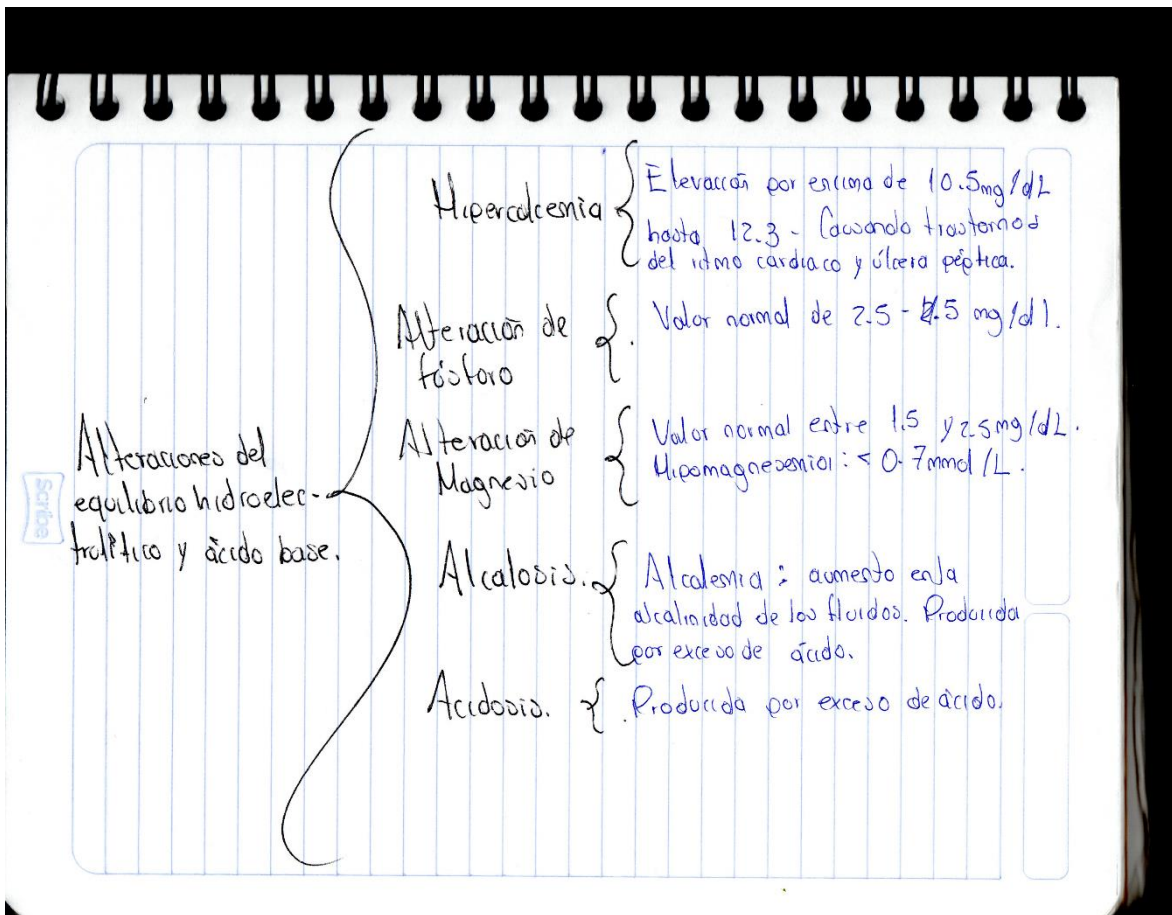 Alteraciones del
equilibrio hidroelec-
trolítico y ácido base.
Hipercalcemia
Elevación por encima de 10.5mg/dL
hasta 12.3 - Causando trastornos
del ritmo cardiaco y úlcera péptica.
Alteración de
fósforo
. Valor normal de 2.5 - 4.5 mg/dl.
Alteración de
Magnesio
Valor normal entre 1.5 y 2.5mg/dL.
Hipomagnesemia: < 0.7mmol/L.
Alcalosis.
Alcalemia: aumento en la
alcalinidad de los fluidos. Producida
por exceso de ácido.
Acidosis.
. Producida por exceso de ácido.
Scribe